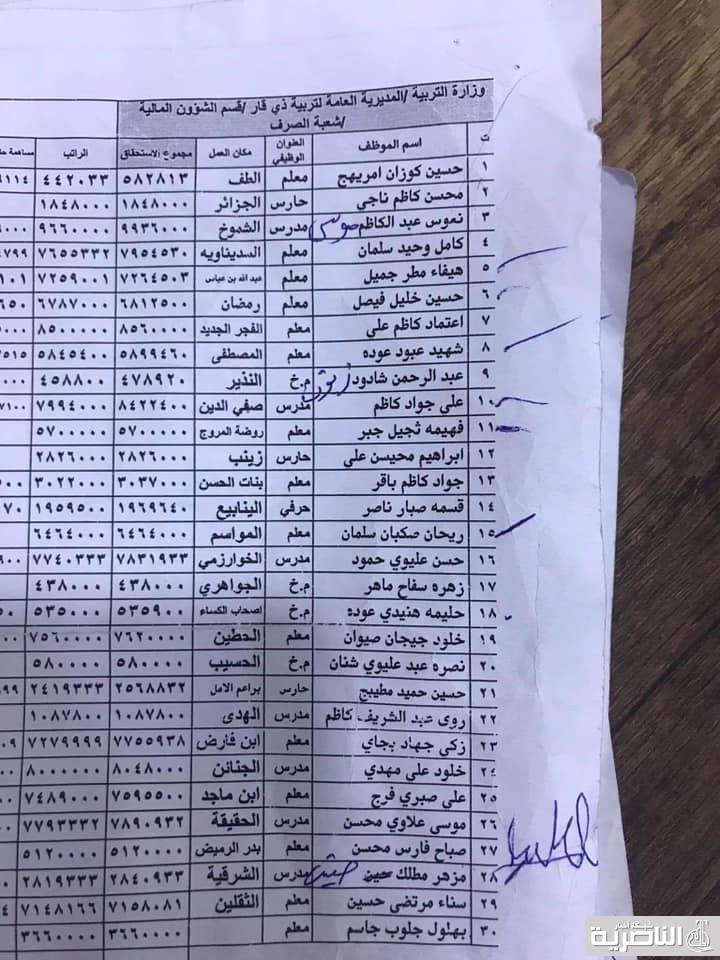 وزارة التربية /المديرية العامة لتربية ذي قار /قسم الشؤون المالية
/شعبة الصرف
ت اسم الموظف العنوان الوظيفي مكان العمل مجموع الاستحقاق الراتب
١ حسين كوزان امريهج معلم الطف ٥٨٢٨١٣ ٤٤٢٠٣٣
٢ محسن كاظم ناجي حارس الجزائر ١٨٤٨٠٠٠ ١٨٤٨٠٠٠
٣ نعوس عبد الكاظم موسى مدرس الشموخ ٩٩٣٦٠٠٠ ٩٦٦٠٠٠٠
٤ كامل وحيد سلمان معلم السديناويه ٧٩٥٤٥٣٠ ٧٦٥٥٣٣٢
٥ هيفاء مطر جميل معلم عبد الله بن عباس ٧٢٦٤٥٠٣ ٧٢٥٩٠٠١
٦ حسين خليل فيصل معلم رمضان ٦٨١٢٥٠٠ ٦٧٨٧٠٠٠
٧ اعتماد كاظم علي معلم الفجر الجديد ٨٥٦٠٠٠٠ ٨٥٠٠٠٠٠
٨ شهيد عبود عوده معلم المصطفى ٥٨٩٩٤٦٠ ٥٨٤٥٤٠٠
٩ عبد الرحمن شادود م.خ النذير ٤٧٨٩٢٠ ٤٥٨٨٠٠
١٠ علي جواد كاظم مدرس صفي الدين ٨٤٢٢٤٠٠ ٧٩٩٤٠٠٠
١١ فهيمه ثجيل جبر معلم روضة المروج ٥٧٠٠٠٠٠ ٥٧٠٠٠٠٠
١٢ ابراهيم محيسن علي حارس زينب ٢٨٢٦٠٠٠ ٢٨٢٦٠٠٠
١٣ جواد كاظم باقر معلم بنات الحسن ٣٠٣٧٠٠٠ ٣٠٢٢٠٠٠
١٤ قسمه صبار ناصر حرفي الينابيع ١٩٦٩٦٤٠ ١٩٥٩٥٠٠
١٥ ريحان صكبان سلمان معلم المواسم ٦٤٦٤٠٠٠ ٦٤٦٤٠٠٠
١٦ حسن عليوي حمود مدرس الخوارزمي ٧٨٣١٩٣٣ ٧٧٤٠٣٣٣
١٧ زهره سفاح ماهر م.خ الجواهري ٤٣٨٠٠٠ ٤٣٨٠٠٠
١٨ حليمه هنيدي عوده م.خ اصحاب الكساء ٥٣٥٩٠٠ ٥٣٥٠٠٠
١٩ خلود جيجان صيوان معلم الحطين ٧٦٢٠٠٠٠ ٧٥٦٠٠٠٠
٢٠ نصره عبد عليوي شنان م.خ الحسيب ٥٨٠٠٠٠ ٥٨٠٠٠٠
٢١ حسين حميد مطيبج حارس براعم الامل ٢٥٦٨٨٣٢ ٢٤١٩٣٣٣
٢٢ روى عبد الشريف كاظم مدرس الهدى ١٠٨٧٨٠٠ ١٠٨٧٨٠٠
٢٣ زكي جهاد بجاي معلم ابن فارض ٧٧٥٥٩٣٨ ٧٢٧٩٩٩٩
٢٤ خلود علي مهدي مدرس الجنائن ٨٠٤٨٠٠٠ ٨٠٠٠٠٠٠
٢٥ علي صبري فرج معلم ابن ماجد ٧٥٩٥٥٠٠ ٧٤٨٩٠٠٠
٢٦ موسى علاوي محسن مدرس الحقيقة ٧٨٩٠٩٣٢ ٧٧٩٣٣٣٢
٢٧ صباح فارس محسن معلم بدر الرميض ٥١٢٠٠٠٠ ٥١٢٠٠٠٠
٢٨ مزهر مطلك مدرس الشرقية ٢٨٤٠٩٣٣ ٢٨١٩٣٣٣
٢٩ سناء مرتضى حسين معلم الثقلين ٧١٥٨٠٨١ ٧١٤٨١٦٦
٣٠ بهلول جلوب جاسم معلم ٣٦٦٠٠٠٠ ٣٦٦٠٠٠٠
شبكة أخبار
الناصرية